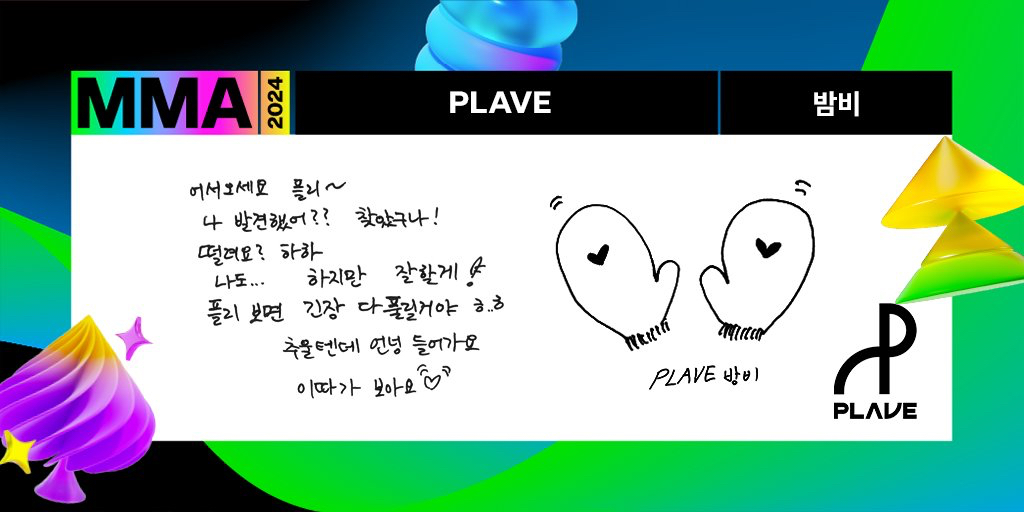 MMA 2024
PLAVE
밤비
어서오세요 플리~
나 발견했어?? 찾았구나!
떨려요? 하하
나도... 하지만 잘할게!
플리 보면 긴장 다 풀릴거야 ㅎ..ㅎ
추울텐데 언넝 들어가요
이따가 보아요♡
PLAVE 밤비
PLAVE